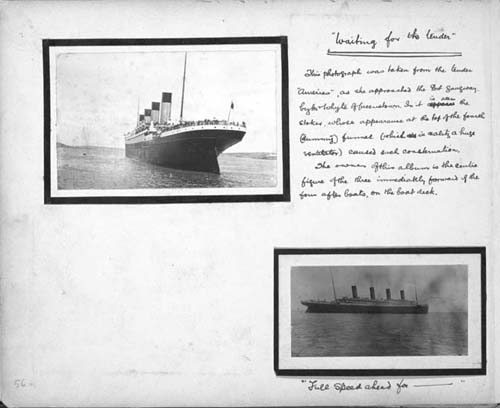 "Waiting for the tender"
This photograph was taken from the tender
America", as she approached the Port Gangway.
by Mr Whyte of Queenstown. In it is seen the
stoker, whose appearance at the top of the fourth
(dummy) funnel (which is in reality a huge
ventilator) caused such consternation.
The owner of this album is the centre
figure of the three immediately forward of the
four after boats, on the boat deck.
56
"Full speed ahead for ——— "